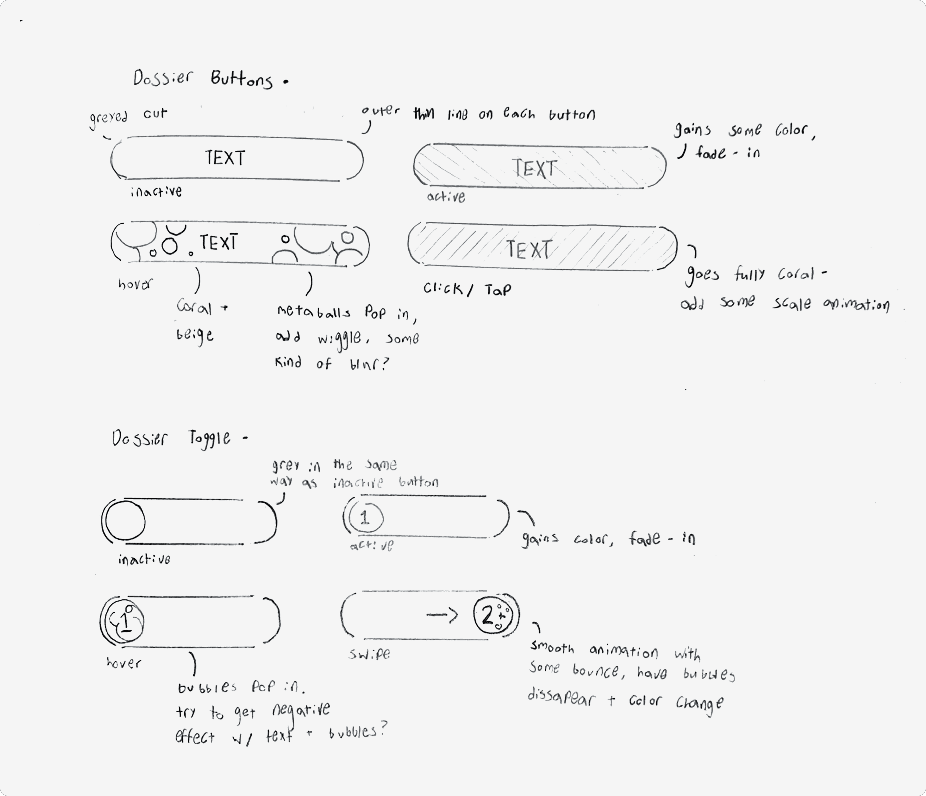 Dossier Buttons -
greyed out
outer thin line on each button
TEXT
inactive
TEXT
active
gains some color,
fade - in
TEXT
hover
coral +
beige
metaballs pop in,
add wiggle, some
kind of blur?
TEXT
Click / Tap
goes fully coral -
add some scale animation
Dossier Toggle -
grey in the same
way as inactive button
inactive
1
active
gains color, fade - in
1
hover
bubbles pop in.
try to get negative
effect w/ text + bubbles?
2
swipe
smooth animation with
some bounce, have bubbles
dissapear + color change